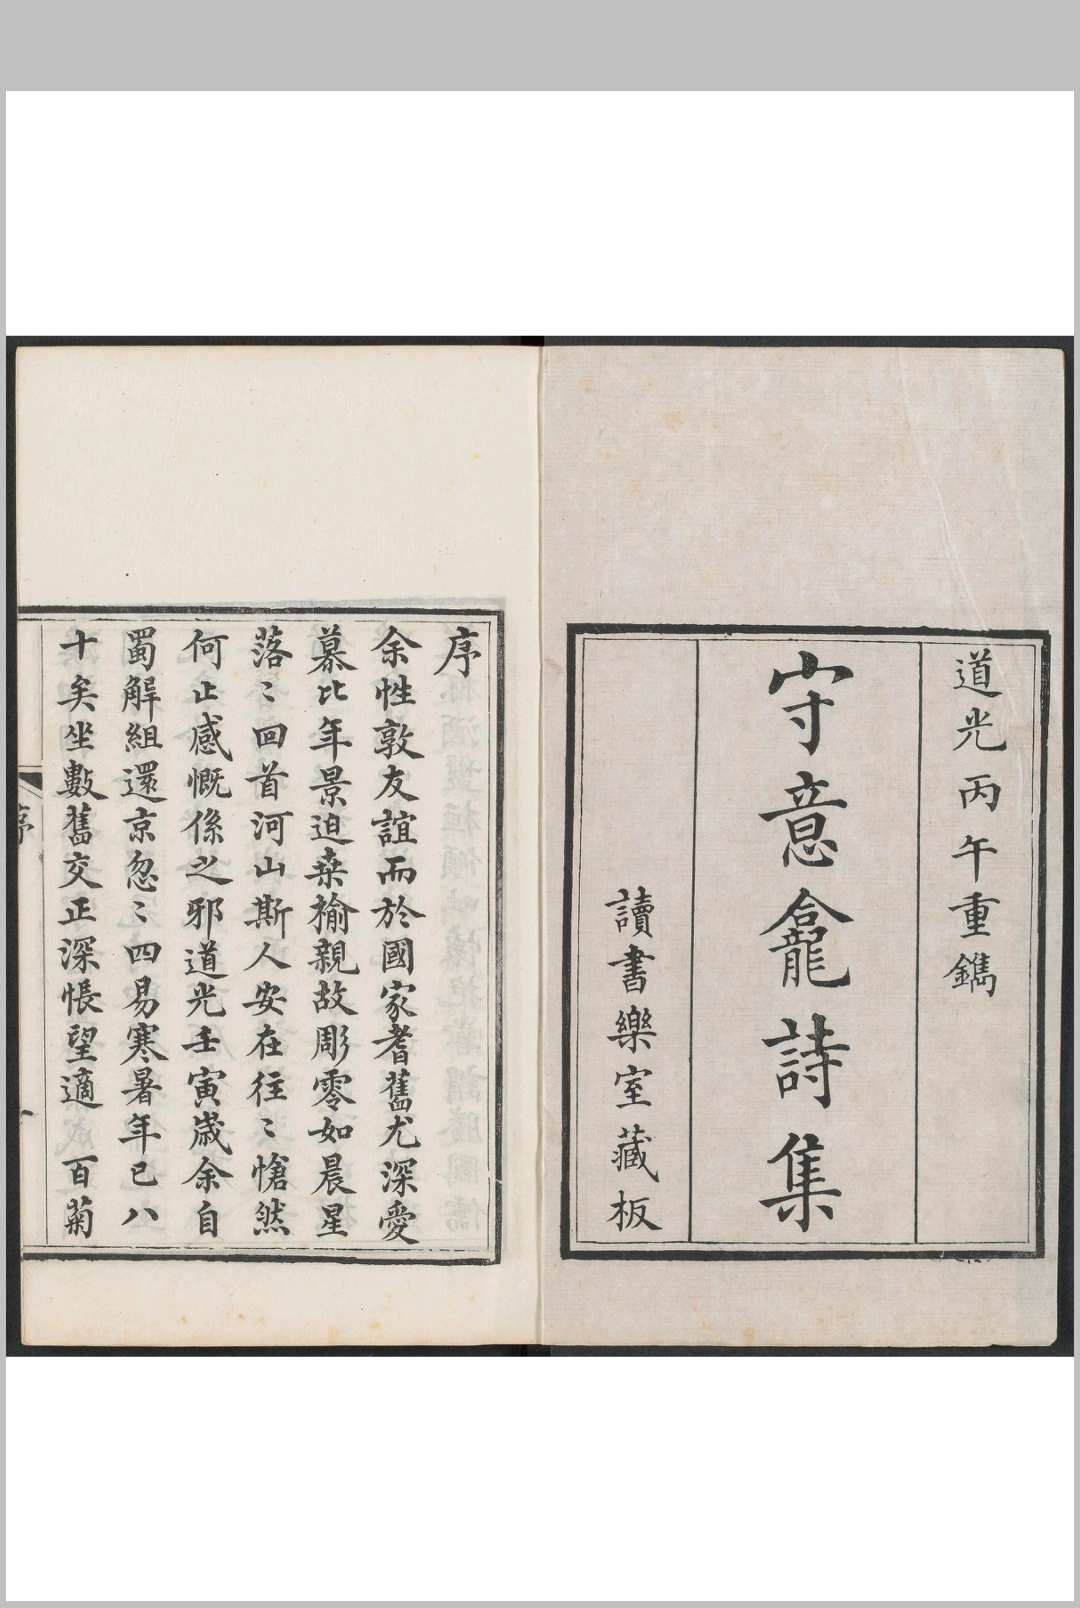 道光丙午重鐫
守意龕詩集
讀書樂室藏板
序
余性敦友誼而於國家耆舊尤深愛
慕比年景迫桒榆親故彫零如晨星
落〻回首河山斯人安在往〻愴然
何止感慨係之邪道光壬寅歲余自
蜀解組還京忽〻四易寒暑年已八
十矣坐數舊交正深悵望適百菊
序